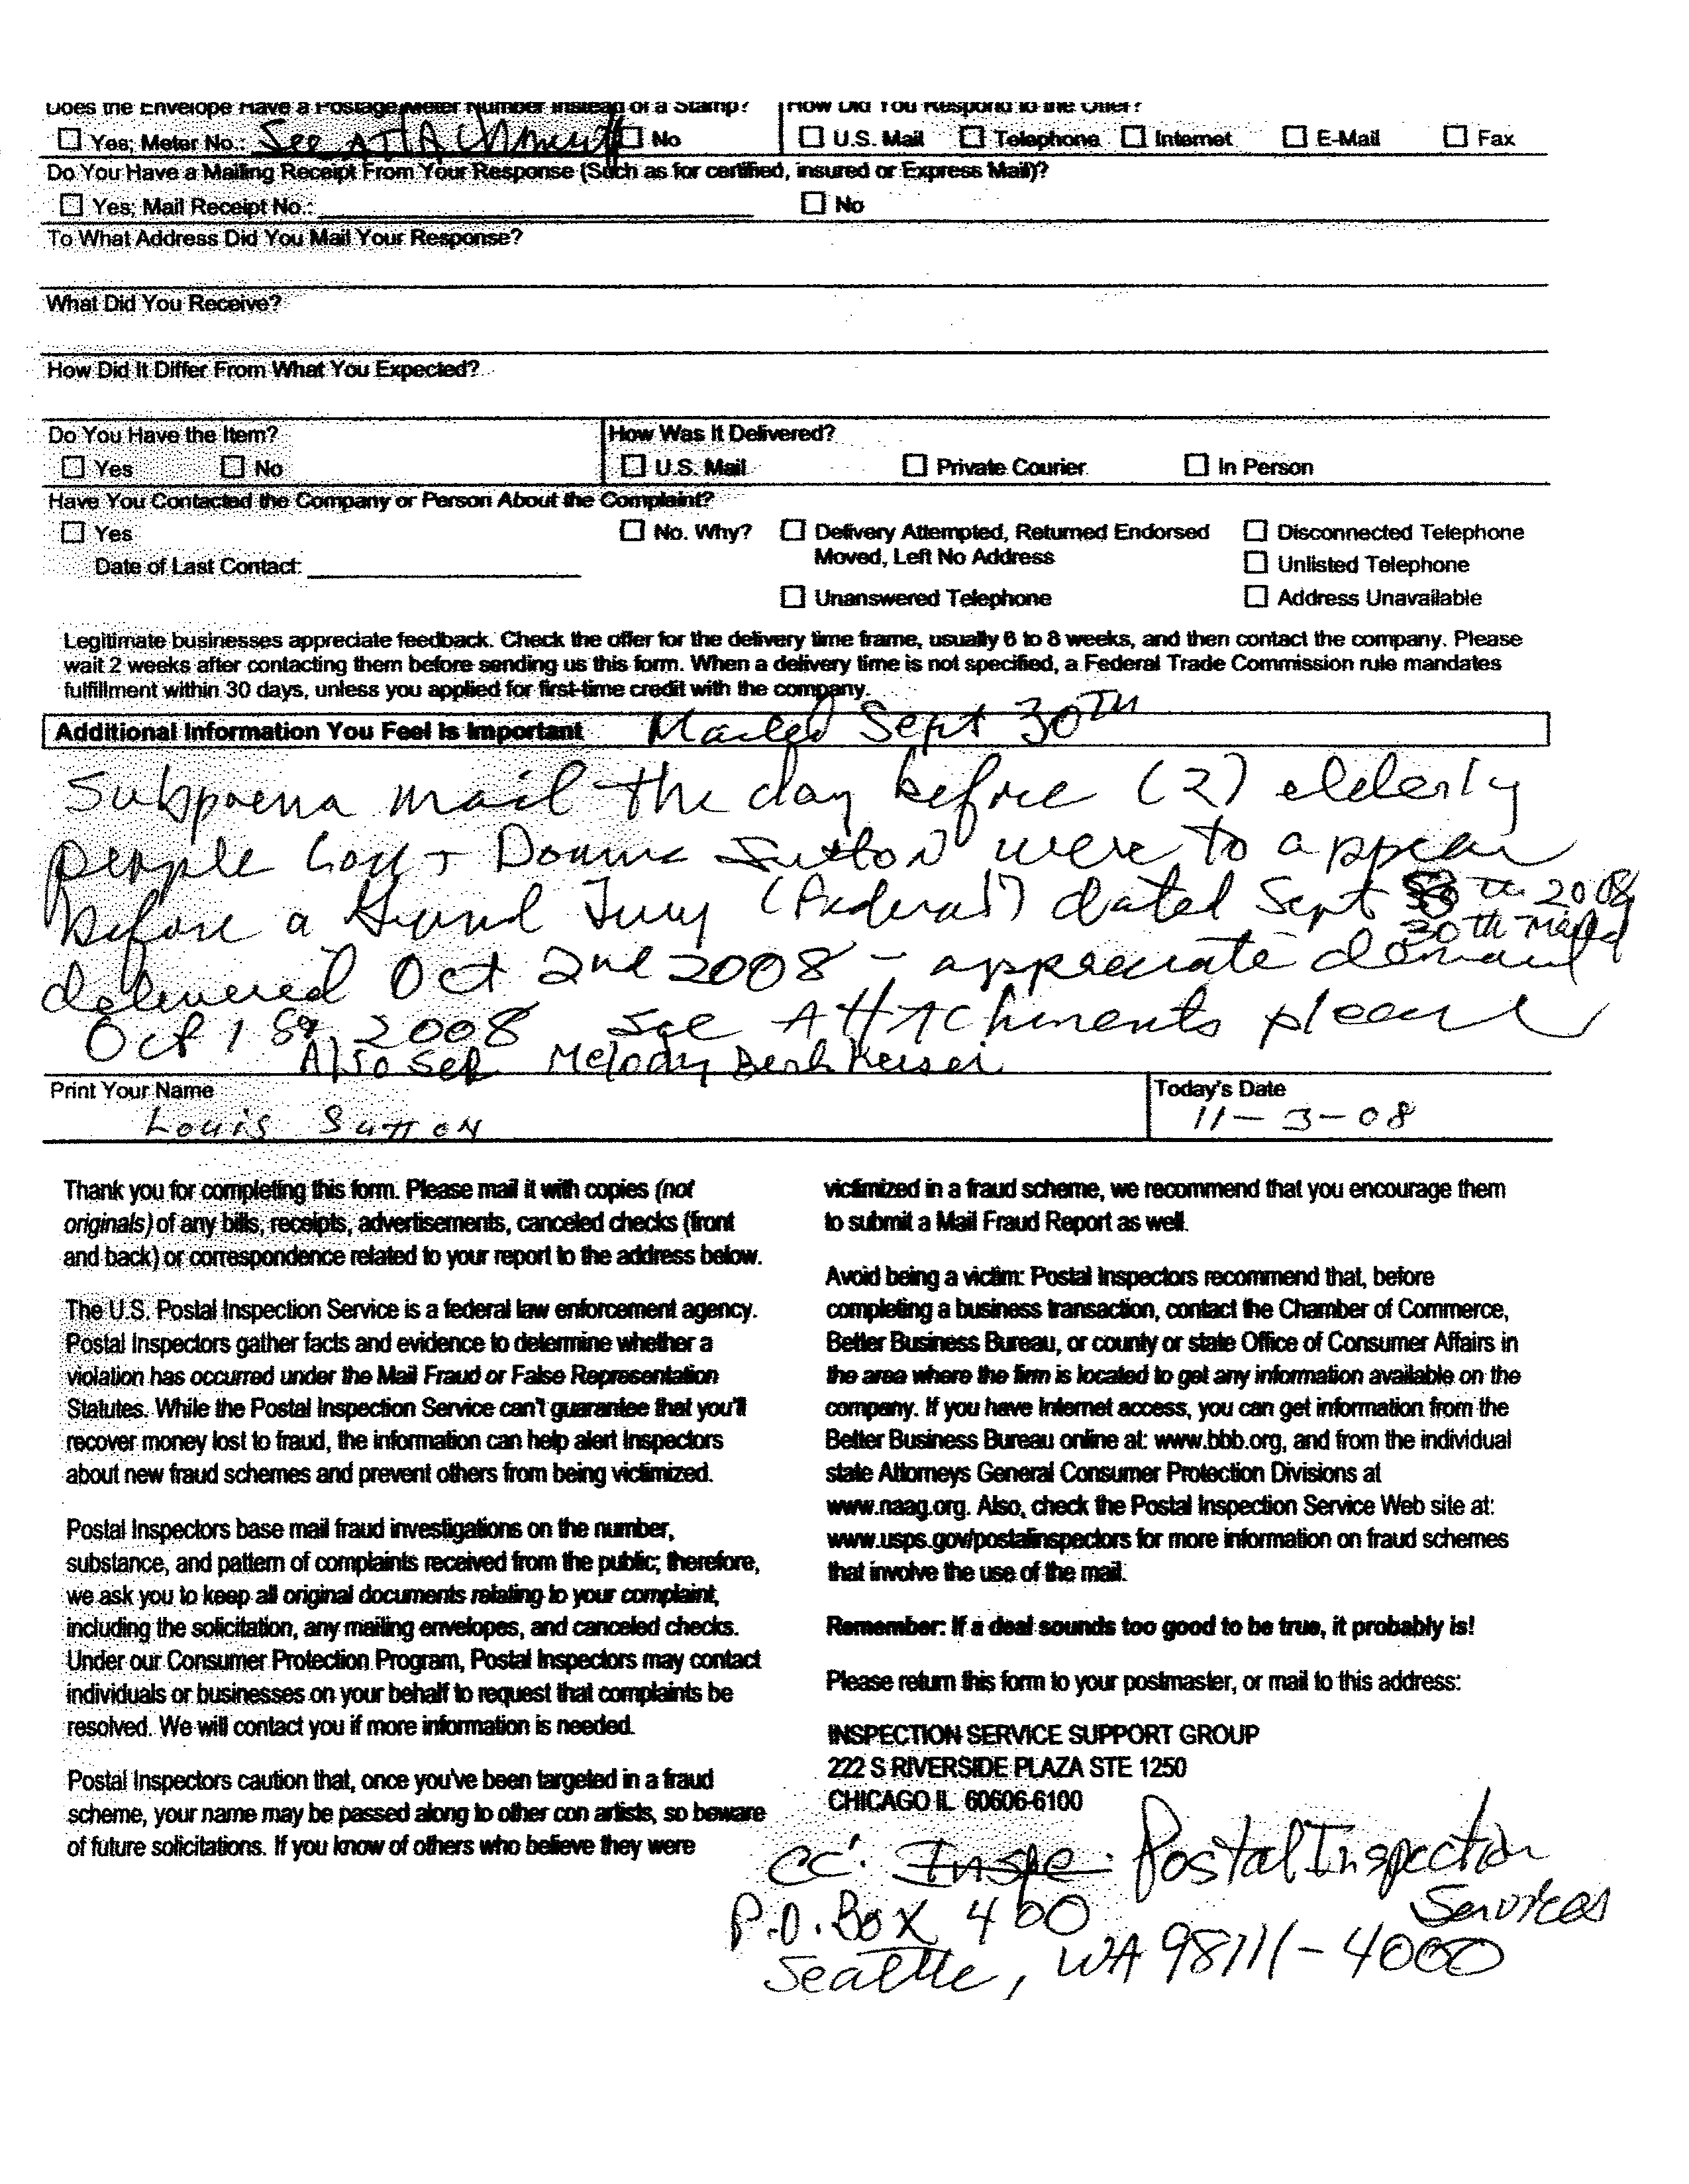 Does the Envelope Have a Postage Meter Number Instead of a Stamp?
How Did You Respond to the Offer?
Yes; Meter No.: See ATTAChment No
U.S. Mail Telephone Internet E-Mail Fax
Do You Have a Mailing Receipt From Your Response (Such as for certified, insured or Express Mail)?
Yes; Mail Receipt No.: No
To What Address Did You Mail Your Response?
What Did You Receive?
How Did It Differ From What You Expected?
Do You Have the Item?
Yes No
How Was It Delivered?
U.S. Mail Private Courier In Person
Have You Contacted the Company or Person About the Complaint?
Yes
Date of Last Contact:
No. Why?
Delivery Attempted, Returned Endorsed
Moved, Left No Address
Unanswered Telephone
Disconnected Telephone
Unlisted Telephone
Address Unavailable
Legitimate businesses appreciate feedback. Check the offer for the delivery time frame, usually 6 to 8 weeks, and then contact the company. Please
wait 2 weeks after contacting them before sending us this form. When a delivery time is not specified, a Federal Trade Commission rule mandates
fulfillment within 30 days, unless you applied for first-time credit with the company.
Additional Information You Feel Is Important Mailed Sept 30TH
Subpoena mail the day before (2) elderly
people Lou + Donna Sutton were to appear
before a Grand Jury (Federal) dated Sept th 2008
30th Mailed
delivered Oct 2nd 2008 - appreciate demand
Oct 1st 2008 see ATTAChments please
Also see Melody
Print Your Name
Louis Sutton
Today's Date
11-3-08
Thank you for completing this form. Please mail it with copies (not
originals) of any bills, receipts, advertisements, canceled checks (front
and back) or correspondence related to your report to the address below.
The U.S. Postal Inspection Service is a federal law enforcement agency.
Postal Inspectors gather facts and evidence to determine whether a
violation has occurred under the Mail Fraud or False Representation
Statutes. While the Postal Inspection Service can't guarantee that you'll
recover money lost to fraud, the information can help alert Inspectors
about new fraud schemes and prevent others from being victimized.
Postal Inspectors base mail fraud investigations on the number,
substance, and pattern of complaints received from the public; therefore,
we ask you to keep all original documents relating to your complaint,
including the solicitation, any mailing envelopes, and canceled checks.
Under our Consumer Protection Program, Postal Inspectors may contact
individuals or businesses on your behalf to request that complaints be
resolved. We will contact you if more information is needed.
Postal Inspectors caution that, once you've been targeted in a fraud
scheme, your name may be passed along to other con artists, so beware
of future solicitations. If you know of others who believe they were
victimized in a fraud scheme, we recommend that you encourage them
to submit a Mail Fraud Report as well.
Avoid being a victim: Postal Inspectors recommend that, before
completing a business transaction, contact the Chamber of Commerce,
Better Business Bureau, or county or state Office of Consumer Affairs in
the area where the firm is located to get any information available on the
company. If you have Internet access, you can get information from the
Better Business Bureau online at: www.bbb.org, and from the individual
state Attorneys General Consumer Protection Divisions at
www.naag.org. Also, check the Postal Inspection Service Web site at:
www.usps.gov/postalinspectors for more information on fraud schemes
that involve the use of the mail.
Remember: If a deal sounds too good to be true, it probably is!
Please return this form to your postmaster, or mail to this address:
INSPECTION SERVICE SUPPORT GROUP
222 S RIVERSIDE PLAZA STE 1250
CHICAGO IL 60606-6100
CC: Inspe Postal Inspection
Services
P.O. Box 400
Seattle, WA 98111-4000